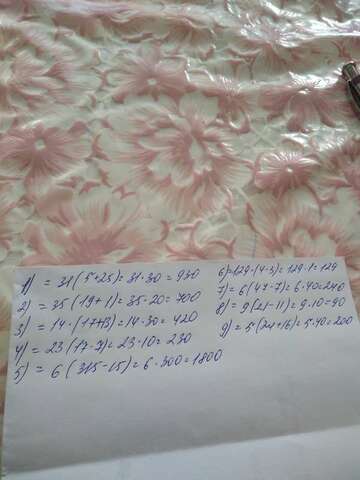 1) = 31(5+25)=31·30=930
2) = 35(19+1)=35·20=700
3) = 14·(17+13)=14·30=420
4) = 23(17-7)=23·10=230
5) = 6(315-15)=6·300=1800
6)=129·(4-3)=129·1=129
7)=6(47-7)=6·40=240
8)=9(21-11)=9·10=90
9)=5(24+16)=5·40=200